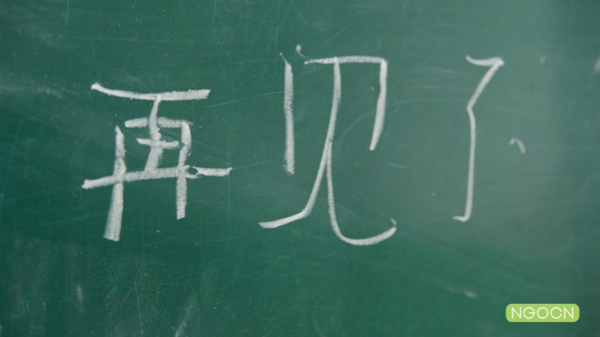 再见了
NGOCN